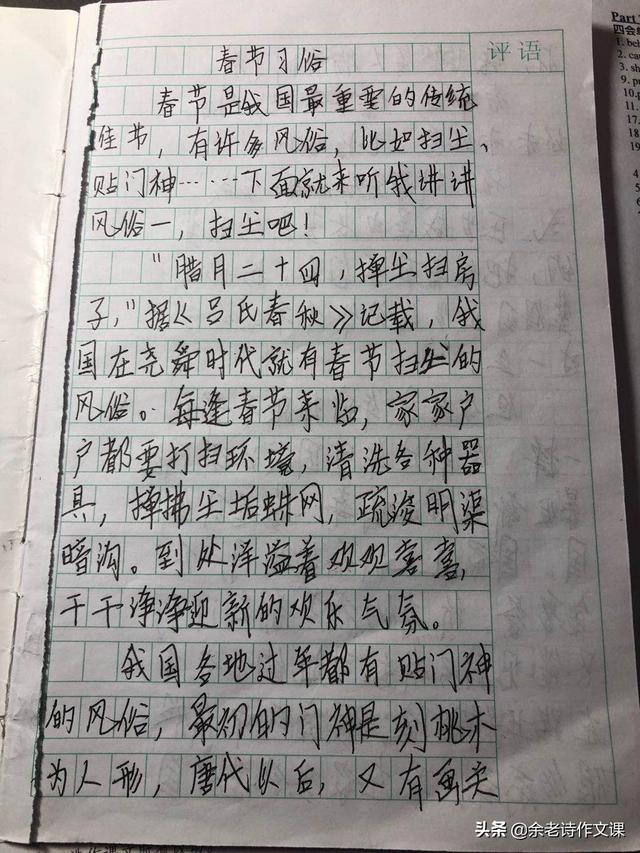 春节习俗
评语
春节是我国最重要的传统
佳节，有许多风俗，比如扫尘、
贴门神……下面就来听我讲讲
风俗一，扫尘吧！
“腊月二十四，掸尘扫房
子，”据《吕氏春秋》记载，我
国在尧舜时代就有春节扫尘的
风俗。每逢春节来临，家家户
户都要打扫环境，清洗各种器
具，掸拂尘垢蛛网，疏浚明渠
暗沟。到处洋溢着欢欢喜喜，
干干净净迎新的欢乐气氛。
我国各地过年都有贴门神
的风俗，最初的门神是刻桃木
为人形，唐代以后，又有画关
Part
1. bel
2. cau
3. sh
9. pu
10. p
11.
17.
18
19
4
5
6
头条 @余老诗作文课